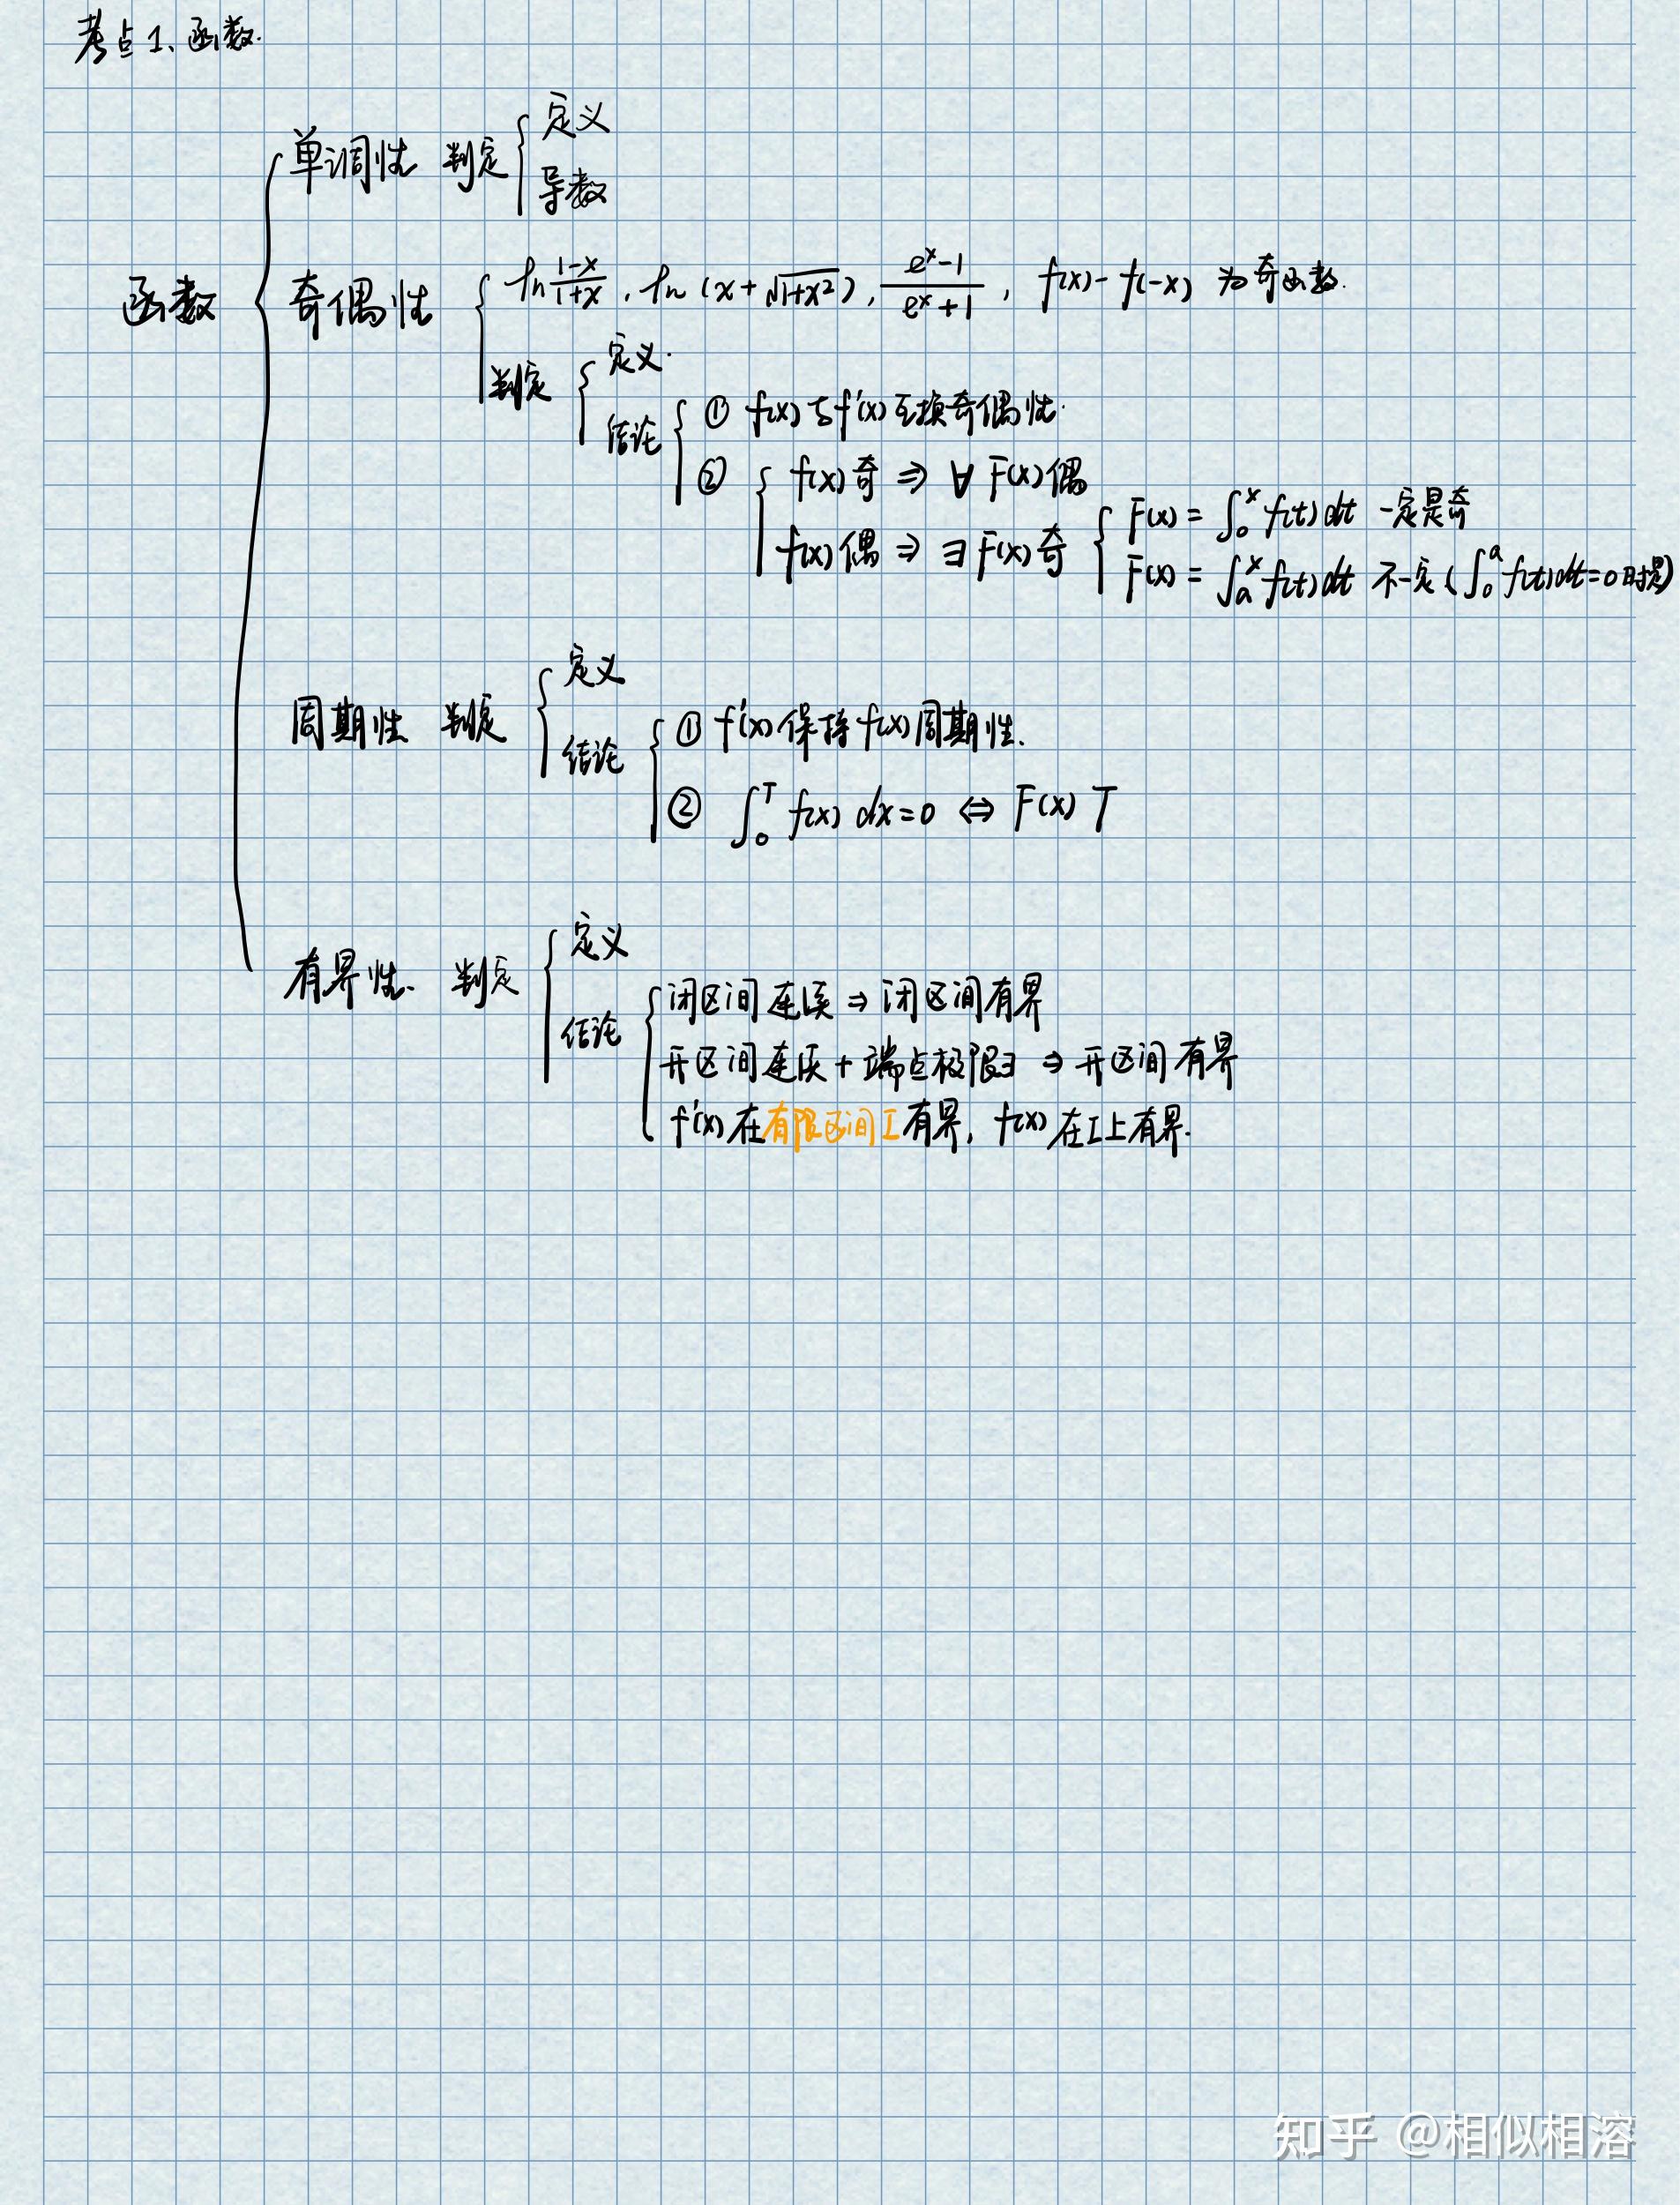 考点1、函数.
函数
单调性 判定
定义
导数
奇偶性
ln (1-x)/(1+x), ln(x+√(1+x²)), (eˣ-1)/(eˣ+1), f(x)-f(-x) 为奇函数.
判定
定义.
结论
① f(x)与f'(x)互换奇偶性.
② f(x)奇 ⇒ ∀ F(x)偶
f(x)偶 ⇒ ∃ F(x)奇
F(x) = ∫₀ˣ f(t)dt 一定是奇
F(x) = ∫ₐˣ f(t)dt 不一定(∫₀ᵃ f(t)dt=0时是)
周期性 判定
定义
结论
① f'(x)保持f(x)周期性.
② ∫₀ᵀ f(x) dx=0 ⇔ F(x) T
有界性. 判定
定义
结论
闭区间连续 ⇒ 闭区间有界
开区间连续 + 端点极限∃ ⇒ 开区间有界
f'(x)在有限区间I有界, f(x)在I上有界.
知乎 @相似相溶